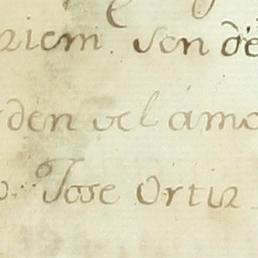 riem. sen de
den vel amo
o. Jose Ortiz